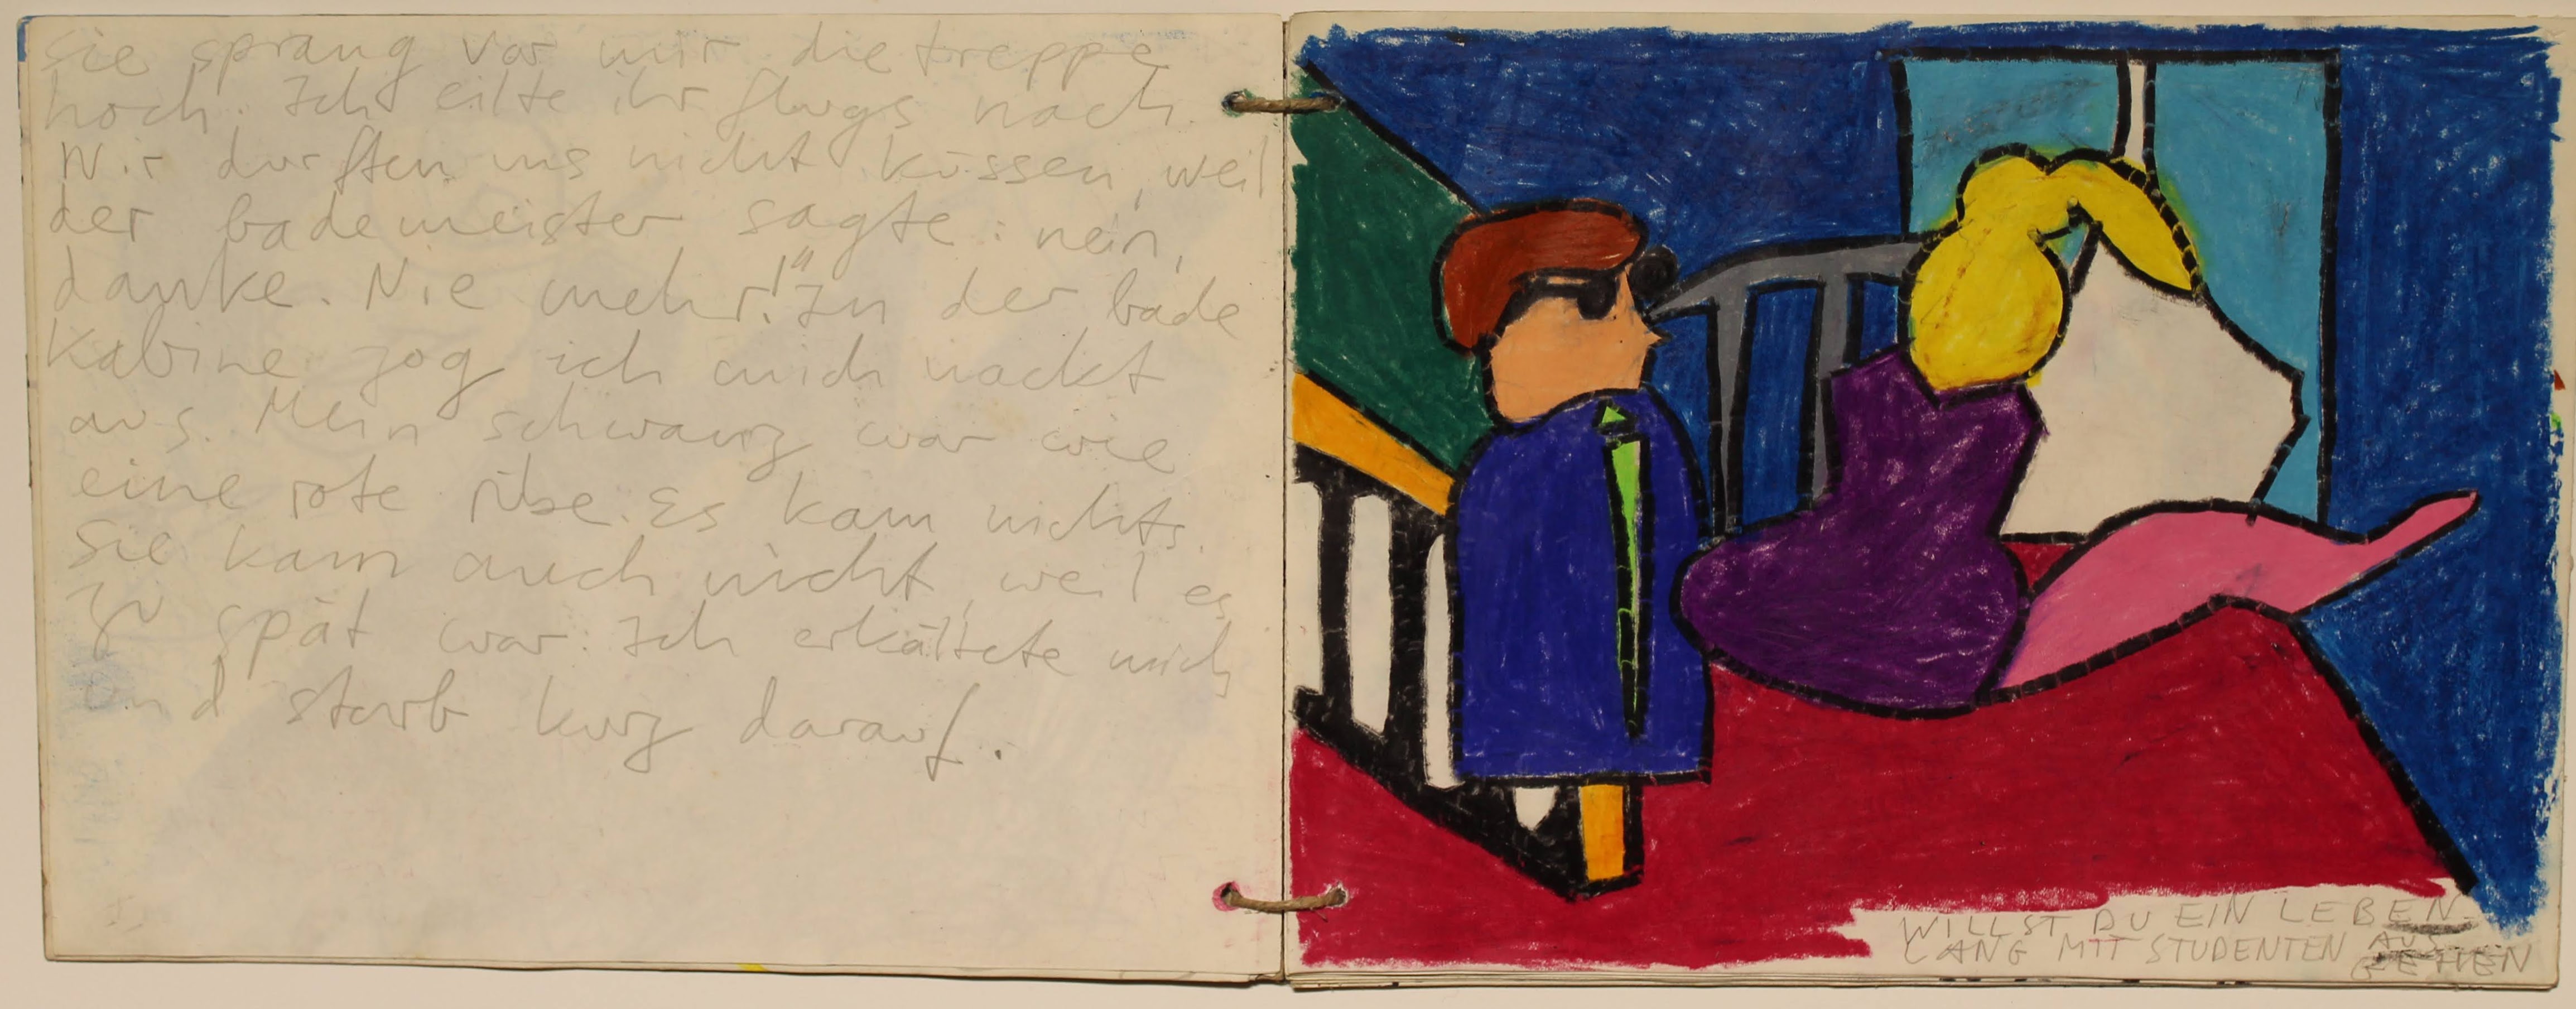 sie sprang vor mir die treppe
hoch. Ich eilte ihr flugs nach.
Wir durften uns nicht küssen, weil
der bademeister sagte: nein,
danke. Nie mehr!" In der bade
kabine zog ich mich nackt
aus. Mein schwanz war wie
eine rote rübe. Es kam nichts.
Sie kam auch nicht, weil es
zu spät war. Ich erkältete mich
und starb kurz darauf.
WILLST DU EIN LEBEN
LANG MIT STUDENTEN AUS
GEHEN